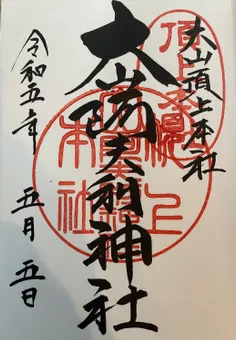 大山頂上本社
大山阿夫利神社
令和五年
五月五日